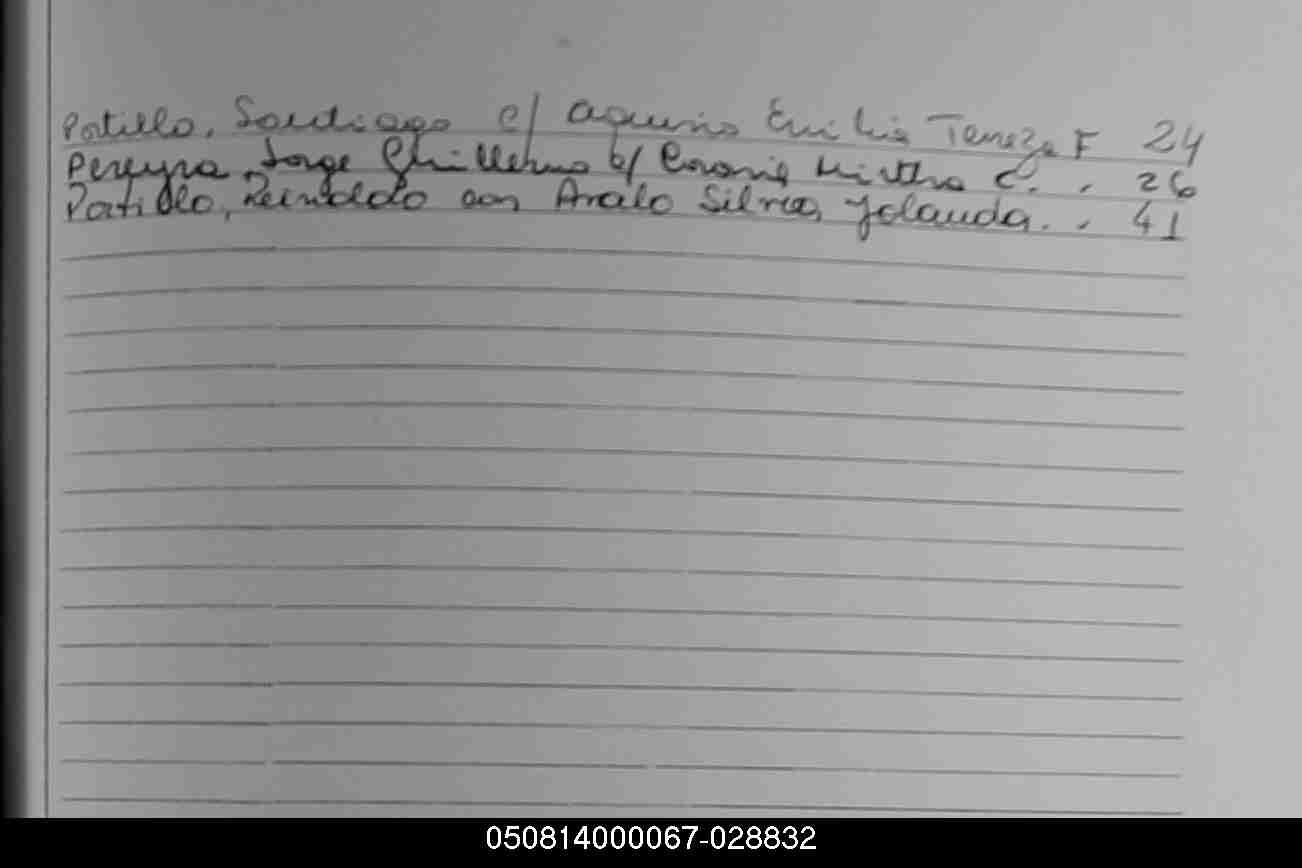 Patillo, Santiago c/ Aquino Emilia Tereza F 24
Pereyra, Jorge Guillermo c/ Mirtha C. . 26
Patillo, Reinaldo con Silvia Yolanda. . 41
050814000067-028832